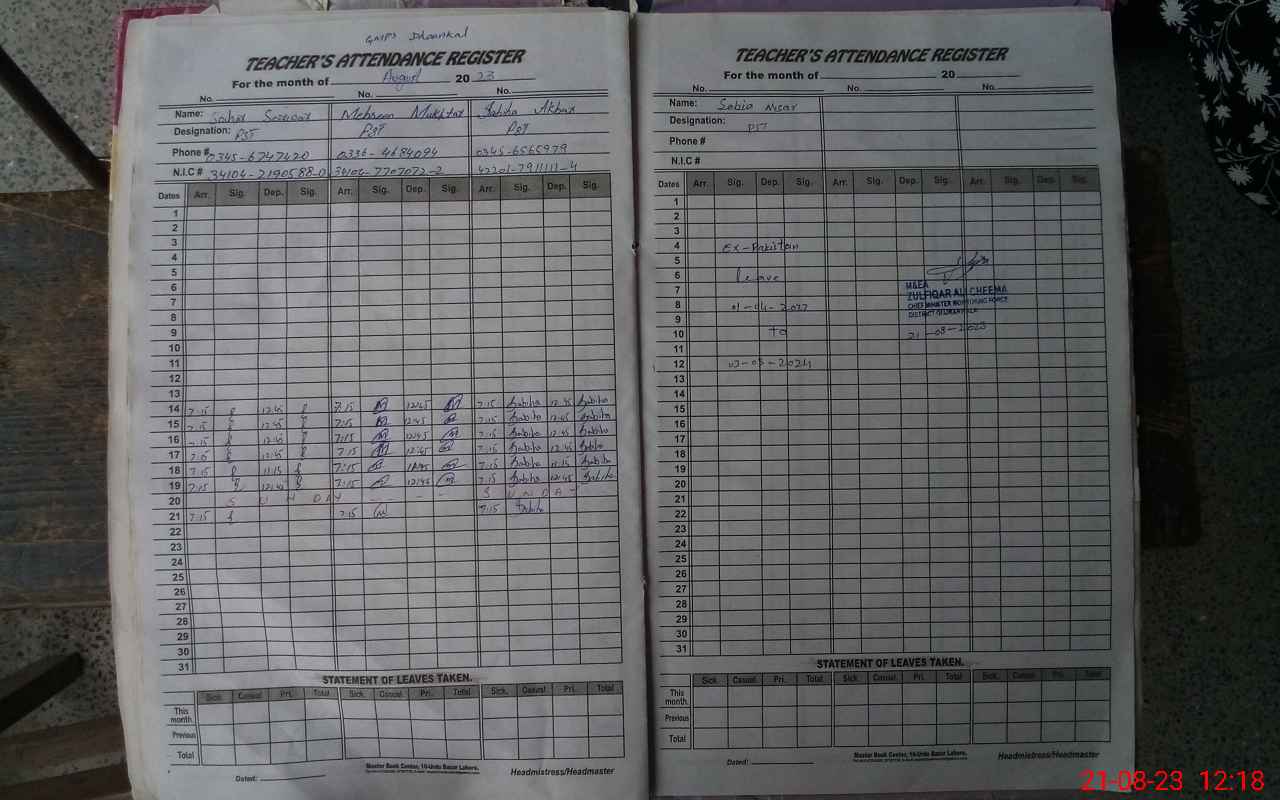 GMPS Dhaunkal
TEACHER'S ATTENDANCE REGISTER
For the month of August 2023
No. No. No.
Name: Mehreen Mukhtar Sabiha Akbar
Designation: PST PST PST
Phone # 0345-6747420 0336-4684094 0345-6565979
N.I.C # 34104-2190588-0 34104-7707072-2 42201-7911111-4
Dates Arr. Sig. Dep. Sig. Arr. Sig. Dep. Sig. Arr. Sig. Dep. Sig.
1
2
3
4
5
6
7
8
9
10
11
12
13
14 7:15 12:45 7:15 12:45 7:15 Sabiha 12:45 Sabiha
15 7:15 12:45 7:15 12:45 7:15 Sabiha 12:45 Sabiha
16 7:15 12:45 7:15 12:45 7:15 Sabiha 12:45 Sabiha
17 7:15 12:45 7:15 12:45 7:15 Sabiha 12:45 Sabiha
18 7:15 11:15 7:15 7:15 Sabiha 11:15 Sabiha
19 7:15 12:45 7:15 12:45 7:15 Sabiha 12:45 Sabiha
20 S U N DAY - - - - S U N D A Y
21 7:15 7:15 7:15 Sabiha
22
23
24
25
26
27
28
29
30
31
STATEMENT OF LEAVES TAKEN.
Sick. Casual Pri. Total Sick. Casual Pri. Total Sick. Casual Pri. Total
This month
Previous
Total
Master Book Center, 10-Urdu Bazar Lahore.
Dated: Headmistress/Headmaster
TEACHER'S ATTENDANCE REGISTER
For the month of 20
No. No. No.
Name: Sobia Nisar
Designation: PST
Phone #
N.I.C #
Dates Arr. Sig. Dep. Sig. Arr. Sig. Dep. Sig. Arr. Sig. Dep. Sig.
1
2
3
4 Ex-Pakistan
5
6 Leave
7 M&EA
ZULFIQAR ALI CHEEMA
8 CHIEF MINISTER MONITORING FORCE
DISTRICT GUJRANWALA
9
10 to 21-08-2023
11
12
13
14
15
16
17
18
19
20
21
22
23
24
25
26
27
28
29
30
31
STATEMENT OF LEAVES TAKEN.
Sick. Casual Pri. Total Sick. Casual Pri. Total Sick. Casual Pri. Total
This month
Previous
Total
Master Book Center, 10-Urdu Bazar Lahore.
Dated: Headmistress/Headmaster
21-08-23 12:18